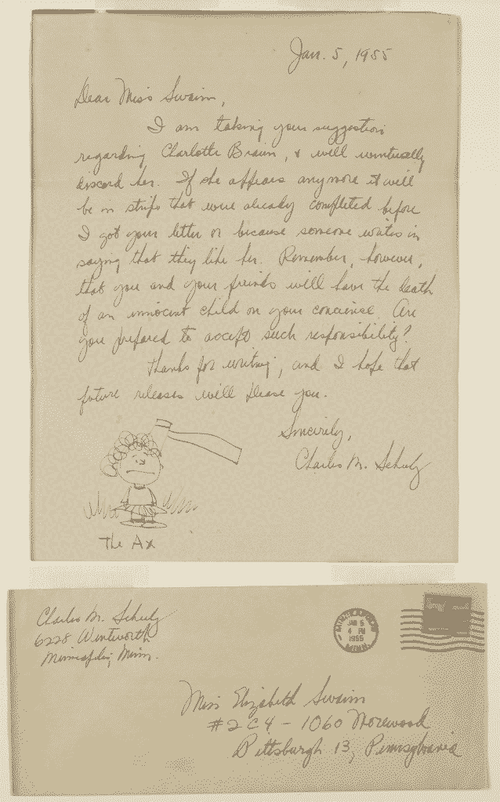 Jan. 5, 1955
Dear Miss Swaim,
I am taking your suggestion
regarding Charlotte Braun, & will eventually
discard her. If she appears anymore it will
be in strips that were already completed before
I got your letter or because someone writes in
saying that they like her. Remember, however,
that you and your friends will have the death
of an innocent child on your conscience. Are
you prepared to accept such responsibility?
Thanks for writing, and I hope that
future releases will please you.
Sincerely,
Charles M. Schulz
The Ax
Charles M. Schulz
6228 Wentworth
Minneapolis, Minn.
MINNEAPOLIS
JAN 5
4 PM
1955
MINN.
Miss Elizabeth Swaim
#2C4 - 1060 Morewood
Pittsburgh 13, Pennsylvania